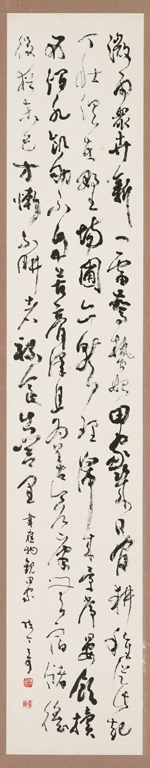 微雨眾卉新一雷驚蟄始田家幾日閒耕種從此起
丁壯俱在野場圃亦就理歸來景常晏飲犢
西澗水飢劬不自苦膏澤且為喜倉廩無宿儲徭
役猶未已方慚不耕者祿食出閭里 韋應物觀田家